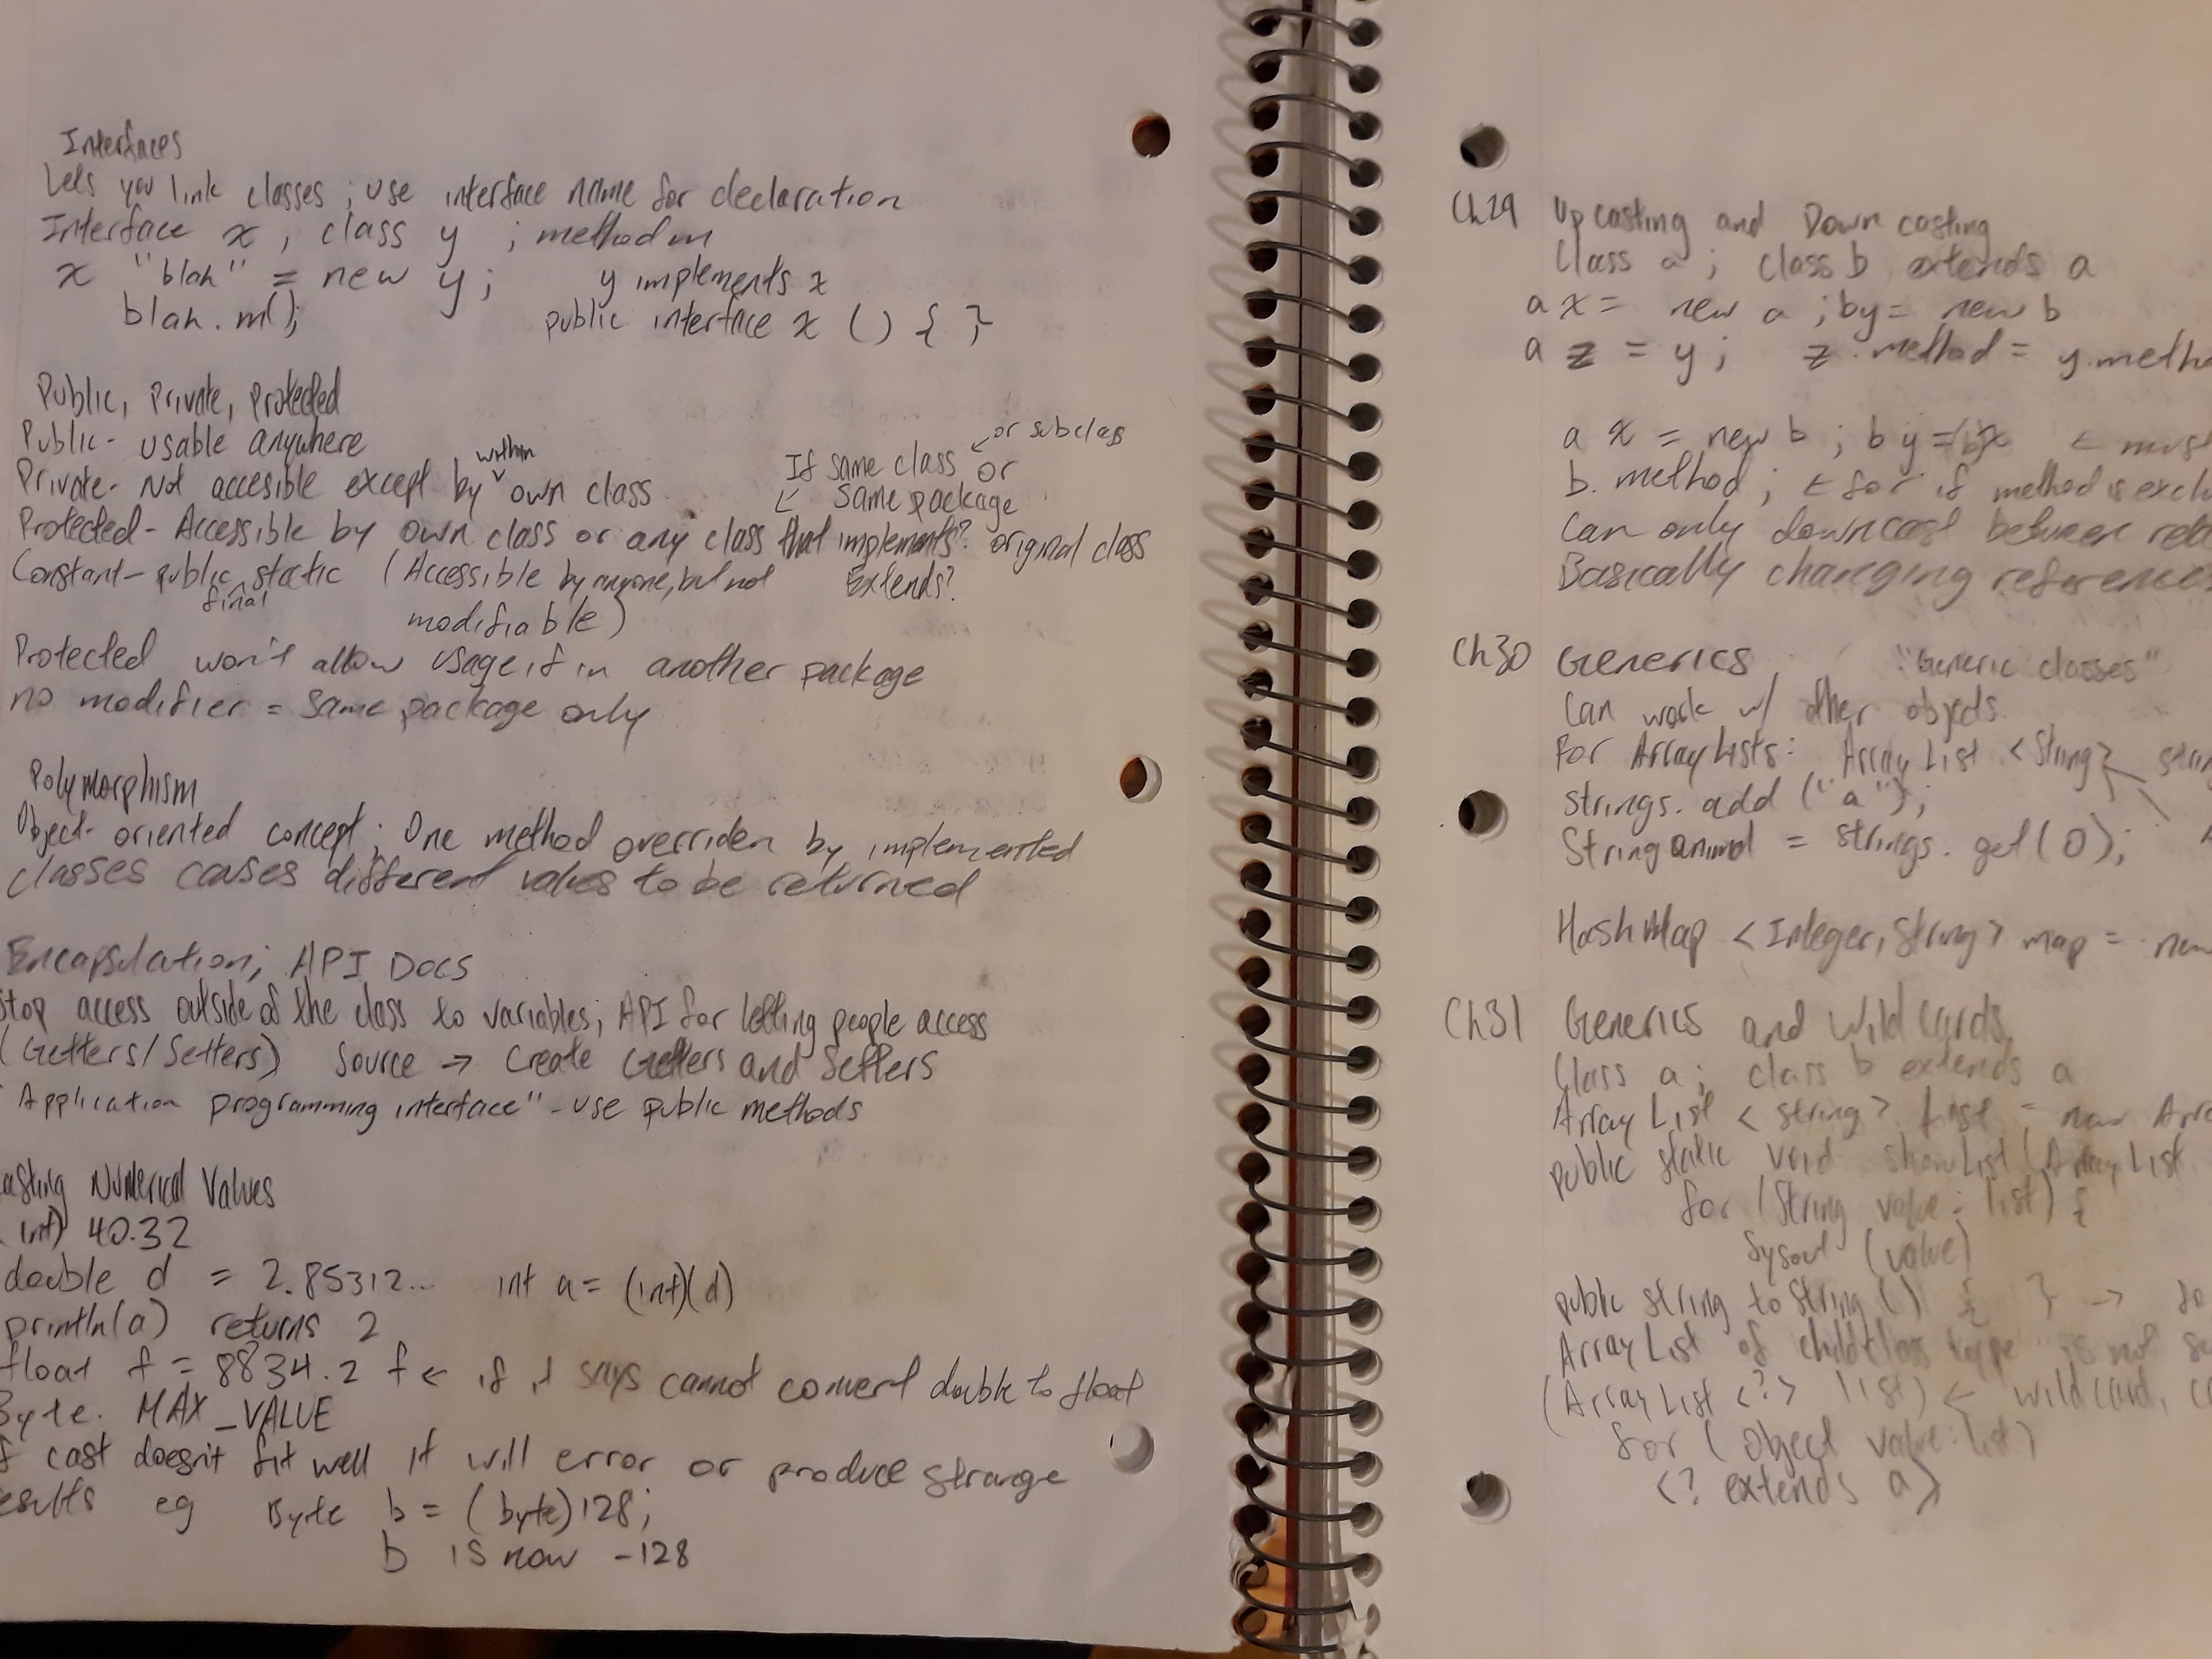 Interfaces
Lets you link classes ; use interface name for declaration
Interface x , class y ; method m
x "blah" = new y ; y implements x
blah.m(); public interface x () { }
Public, Private, Protected
Public- usable anywhere
or subclass
Private- Not accesible except by within own class
If same class or
same package
Protected- Accessible by own class or any class that implements? original class
Extends?
Constant- public static final (Accessible by anyone, but not
modifiable)
Protected won't allow usage if in another package
no modifier = same package only
Polymorphism
Object- oriented concept ; One method overriden by implemented
classes causes different values to be returned
Encapsulation; API Docs
Stop access outside of the class to variables; API for letting people access
(Getters/Setters) Source → Create Getters and Setters
"Application programming interface" - use public methods
asting Numerical Values
int) 40.32
double d = 2.85312... int a = (int)(d)
println(a) returns 2
float f = 8834.2 f ← if it says cannot convert double to float
Byte. MAX_VALUE
f cast doesn't fit well it will error or produce strange
esults eg Byte b = (byte)128;
b is now -128
Ch29 Upcasting and Down casting
Class a ; class b extends a
a x = new a ; b y = new b
a z = y ; z.method = y.metho
a x = new b ; b y = (b)x ← must
b. method ; ← for if method is exclu
Can only downcast between rela
Basically changing reference
Ch30 Generics "Generic classes"
Can work w/ other objects
For ArrayLists: Array List <String> strin
strings. add ("a");
String animal = strings. get(0);
HashMap <Integer, String> map = new
Ch31 Generics and Wildcards
Class a ; class b extends a
Array List <string> list = new Arra
public static void showList (Array List
for (String value : list) {
Sysout (value)
public string to String () { } → to
ArrayList of child class type is not su
(Array List <?> list) ← wildcard, c
for ( Object value : list)
<? extends a>